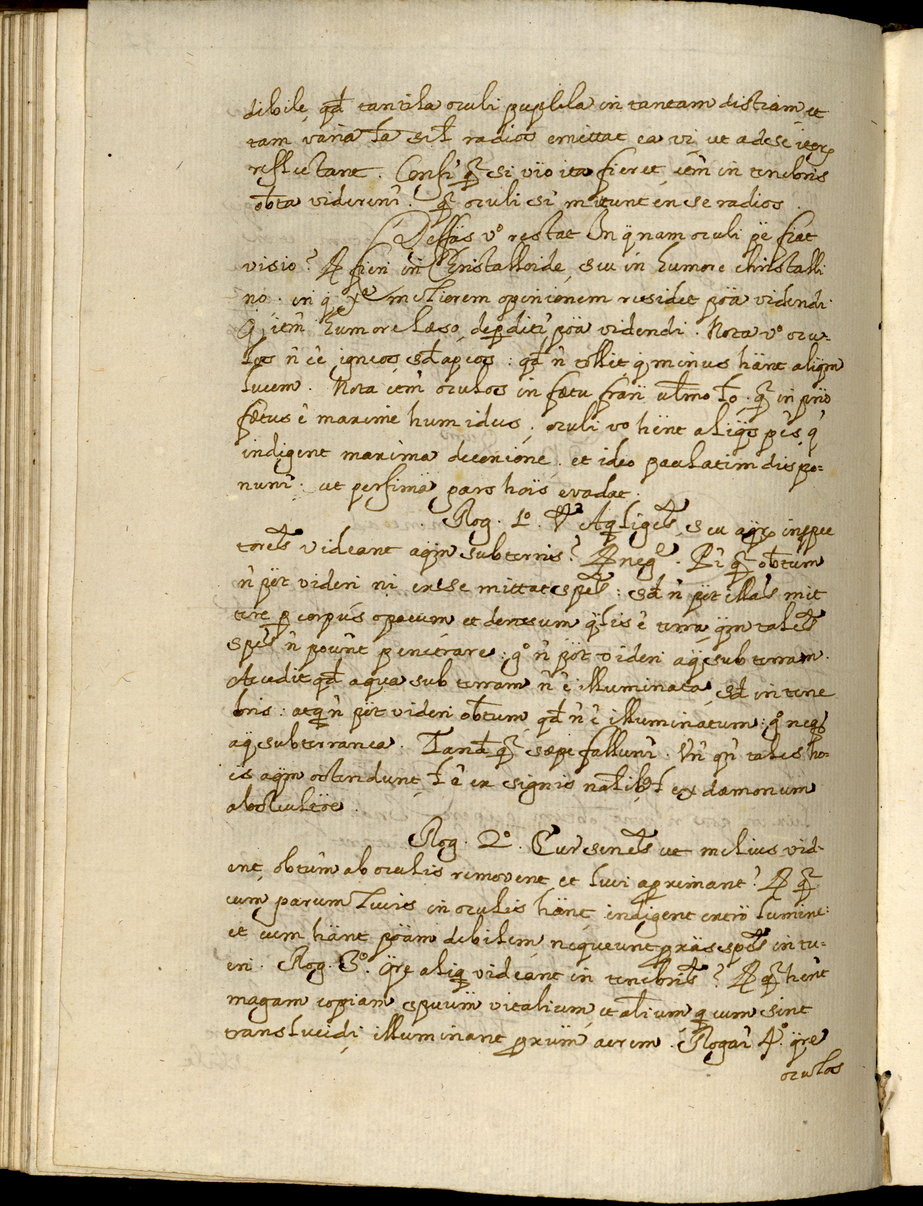 dibile, qd̄ tantilla oculi pupilla in tantam distãiam, et
tam varia t̄a sil̄ radios emittat ea vi, ut ad se iteꝝ
reflectant. Confr̄ qꝛ̄ si vio ita fieret, etm̄ in tenebris
obt̄a viderent̄. qꝛ̄ oculi si mitunt en se radios.
Difflãs vº restat In q̄nam oculi p̄e fiat
visio? ℟ fieri in Christalloide, seu in humore christalli
no. in q̄ xᵉ meliorem opinionem residet põa videndi.
q̄ etm̄ humore læso, depditr̄ põa videndi. Nota vº ocu-
los ñ ẽe igneos, sd̄ aqueos: qd̄ ñ tollit q̄minus hãnt aliqm̄
lucem. Nota etm̄ oculos in fætu frari ult̄mo lº, qꝛ̄ in prio
fætus ẽ maxime humidus, oculi vo hẽnt aliq̄s pẽs q̄
indigent maxima decocione. et ideo paulatim dispo=
nunt̄. ut perfr̄ma pars hois evadat.
Rog. 1º. V̄ Aqligẽs, seu aqꝝ inspec
tores videant aqm̄ subternis? ℟ negᵉ. Pr̄ qꝛ̄ obtum
ñ põt videri ni ex se mittat spẽs: sd̄ ñ põt illas mit
tere p corpus opacum et densum q̄lis ẽ terra, qm̄ tales
spẽs ñ pount penetrare: gº ñ põt videri aq̄ sub terram.
Accedit qd̄ aqua sub terram ñ ẽ illuminata, sd̄ in tene
bris: atq̄ ñ põt videri obtum, qd̄ ñ ẽ illuminatum: gº neqꝫ
aq̄ subterranea. Tand̄ qꝛ̄ sæpe fallunt̄. Vñ qñ tales ho-
ies aqm̄ ostendunt, t̄ ẽ ex signis nãlibꝫ t̄ ex dæmonum
abstulltõe.
Rog. 2º. Cur senes ut melius vid-
ent, obtum ab oculis removent, et luci aproximant? ℟ qꝛ̄
cum parum lucis in oculis hãnt, indigent extrõ lumine:
et cum hãnt põam debilem, nequeunt graas spẽs in tu-
eri. Rog. 3º. q̄re aliq̄ videant in tenebris? ℟ qꝛ̄ hẽnt
magnam copiam spuum vitalium, et alium q̄ cum sint
translucidi, illuminant prxum aerem. Rogar̄ 4º. q̄re
oculos